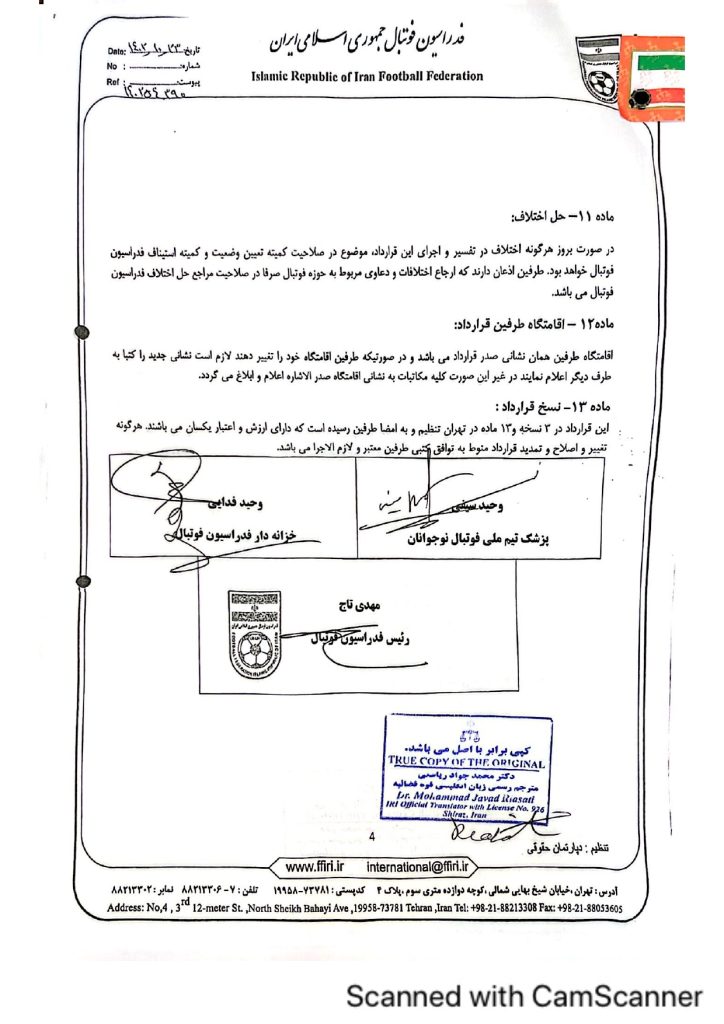 فدراسیون فوتبال جمهوری اسلامی ایران
Islamic Republic of Iran Football Federation
Date: ۱۴۰۲,۱۰,۲۳ تاریخ:
No : شماره:
Ref : پیوست:
ماده ۱۱- حل اختلاف:
در صورت بروز هرگونه اختلاف در تفسیر و اجرای این قرارداد، موضوع در صلاحیت کمیته تعیین وضعیت و کمیته استیناف فدراسیون
فوتبال خواهد بود. طرفین اذعان دارند که ارجاع اختلافات و دعاوی مربوط به حوزه فوتبال صرفا در صلاحیت مراجع حل اختلاف فدراسیون
فوتبال می باشد.
ماده۱۲ – اقامتگاه طرفین قرارداد:
اقامتگاه طرفین همان نشانی صدر قرارداد می باشد و در صورتیکه طرفین اقامتگاه خود را تغییر دهند لازم است نشانی جدید را کتبا به
طرف دیگر اعلام نمایند در غیر این صورت کلیه مکاتبات به نشانی اقامتگاه صدر الاشاره اعلام و ابلاغ می گردد.
ماده ۱۳- نسخ قرارداد :
این قرارداد در ۳ نسخه و۱۳ ماده در تهران تنظیم و به امضا طرفین رسیده است که دارای ارزش و اعتبار یکسان می باشند. هرگونه
تغییر و اصلاح و تمدید قرارداد منوط به توافق کتبی طرفین معتبر و لازم الاجرا می باشد.
وحید سینی
پزشک تیم ملی فوتبال نوجوانان
وحید فدایی
خزانه دار فدراسیون فوتبال
مهدی تاج
رئیس فدراسیون فوتبال
کپی برابر با اصل می باشد.
TRUE COPY OF THE ORIGINAL
دکتر محمد جواد ریاستی
مترجم رسمی زبان انگلیسی قوه قضائیه
Dr. Mohammad Javad Riasati
IRI Official Translator with License No. 926
Shiraz, Iran
4
تنظیم : دپارتمان حقوقی
www.ffiri.ir international@ffiri.ir
آدرس : تهران ,خیابان شیخ بهایی شمالی ,کوچه دوازده متری سوم ,پلاک ۴ کدپستی : ۷۳۷۸۱-۱۹۹۵۸ تلفن : ۷-۸۸۲۱۳۳۰۶ نمابر : ۸۸۲۱۳۳۰۲
Address: No,4 , 3rd 12-meter St. ,North Sheikh Bahayi Ave ,19958-73781 Tehran ,Iran Tel: +98-21-88213308 Fax: +98-21-88053605
Scanned with CamScanner